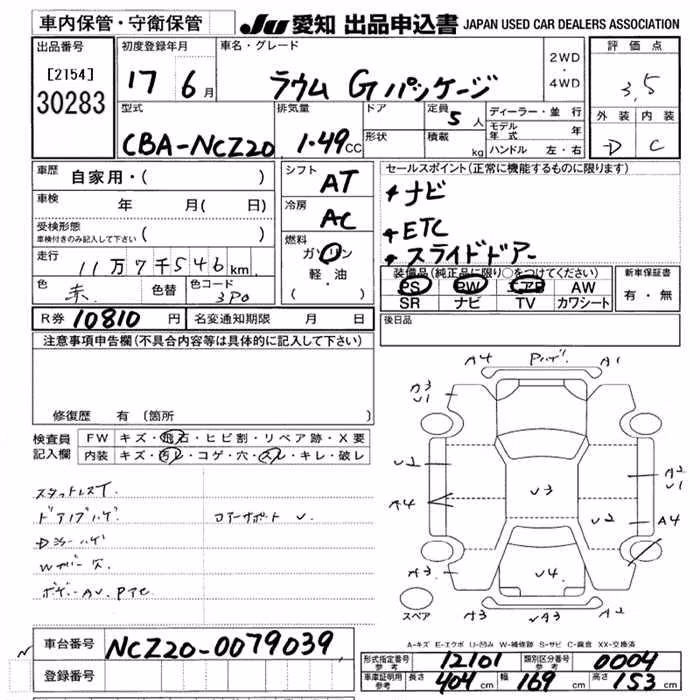 車内保管・守衛保管
JU 愛知 出品申込書 JAPAN USED CAR DEALERS ASSOCIATION
出品番号
[2154]
30283
初度登録年月
17 6月
車名・グレード
ラウム Gパッケージ
2WD
・
4WD
評価点
3.5
外装 内装
D C
型式
CBA-NCZ20
排気量
1.49CC
ドア
形状
定員 5人
積載 kg
ディーラー・並行
モデル年式 年
ハンドル 左・右
車歴 自家用・( )
車検 年 月( 日)
受検形態
車検付きのみ記入して下さい ( )
走行 11万7千546km
色 赤 色替 色コード 3P0
シフト AT
冷房 AC
燃料
ガソリン
軽・油
( )
セールスポイント(正常に機能するものに限ります)
ナビ
ETC
スライドドアー
装備品(純正品に限り○をつけてください)
PS PW エアB AW
SR ナビ TV カワシート
新車保証書
有・無
R券 10810円 名変通知期限 月 日
後日品
注意事項申告欄(不具合内容等は具体的に記入して下さい)
修復歴 有(箇所 )
検査員
記入欄
FW キズ・飛石・ヒビ割・リペア跡・X要
内装 キズ・汚レ・コゲ・穴・スレ・キレ・破レ
スタットレスT
ドアノブハゲ
コアーサポート U
Dミラーハゲ
Wカバー欠
ボデーAU.PTC
A4 A1
A3
U1
U2
A4
U3
A2
U1
U2 A4
A3 U4 A3 A2
スペア
A-キズ E-エクボ U-凹み W-補修跡 S-サビ C-腐食 XX-交換済
車台番号 NCZ20-0079039
登録番号
形式指定番号
参考 12101
類別区分番号
参考 0004
車庫証明用
参考 長さ 404cm 幅 169cm 高さ 153cm